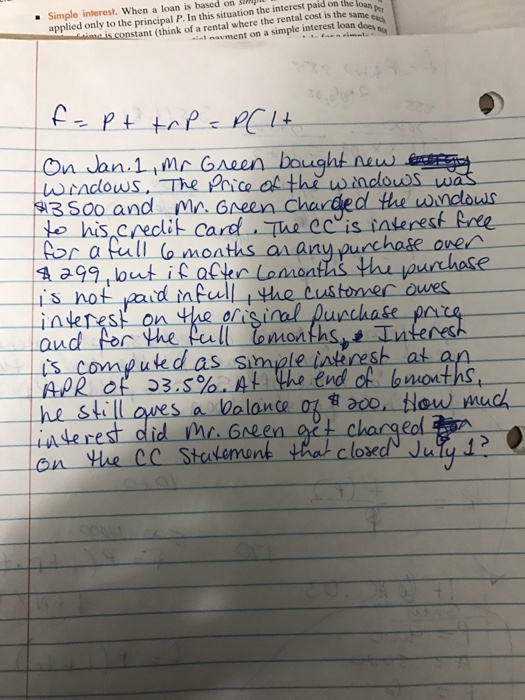 Simple interest. When a loan is based on
applied only to the principal P. In this situation the interest paid on the loan per
is constant (think of a rental where the rental cost is the same each
payment on a simple interest loan does not
f = Pt trP = P(1+
On Jan.1, Mr Green bought new
windows. The Price of the windows was
$3500 and Mr. Green charged the windows
to his credit card. The CC is interest free
for a full 6 months on any purchase over
$299, but if after 6 months the purchase
is not paid in full, the customer owes
interest on the original purchase price
and for the full 6months. Interest
is computed as simple interest at an
APR of 23.5%. At the end of 6 months,
he still owes a balance of $200. How much
interest did Mr. Green get charged
on the CC Statement that closed July 1?